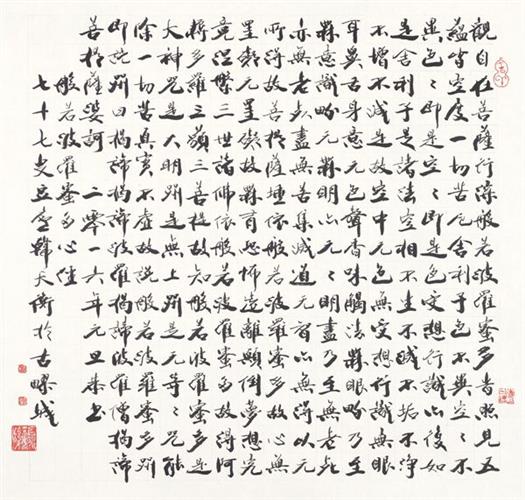 觀自在菩薩行深般若波羅蜜多時照見五
蘊皆空度一切苦厄舍利子色不異空々不
異色々即是空々即是色受想行識亦復如
是舍利子是諸法空相不生不滅不垢不淨
不增不減是故空中无色無受想行識無眼
耳鼻舌身意无色聲香味觸法無眼界乃至
無意識界无無明亦无々明盡乃至無老死
亦無老死盡無苦集滅道无智亦無得以无
所得故菩提薩埵依般若波羅蜜多故心無
罣礙无罣礙故無有恐怖遠離顛倒夢想究
竟涅槃三世諸佛依般若波羅蜜多故得阿
耨多羅三藐三菩提故知般若波羅蜜多是
大神咒是大明咒是無上咒是无等々咒能
除一切苦真實不虛故說般若波羅蜜多咒
即說咒曰揭諦揭諦波羅揭諦波羅僧揭諦
菩提薩婆訶 二零一六年元旦恭書
般若波羅蜜多心經
七十七叟豆廬韓天衡於古疁城